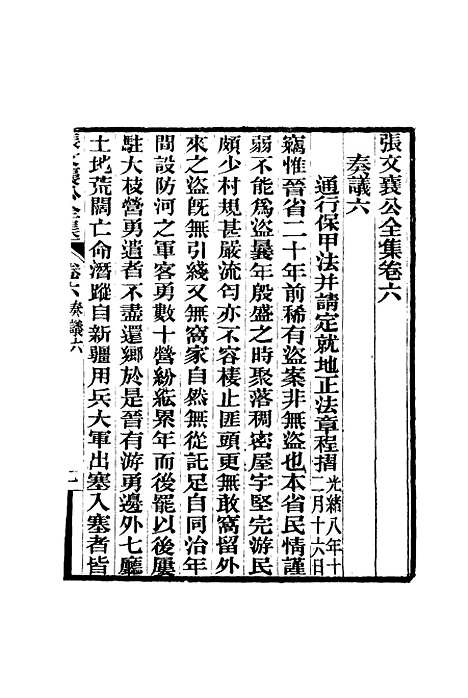 張文襄公全集卷六
奏議六
通行保甲法并請定就地正法章程摺光緒八年十二月十六日
竊惟晉省二十年前稀有盜案非無盜也本省民情謹
弱不能為盜曩年殷盛之時聚落稠密屋宇堅完游民
頗少村規甚嚴流匄亦不容棲止匪頭更無敢窩留外
來之盜旣無引綫又無窩家自然無從託足自同治年
間設防河之軍客勇數十營紛紜累年而後罷以後屢
駐大枝營勇遣者不盡還鄉於是晉有游勇邊外七廳
土地荒闊亡命潛蹤自新疆用兵大軍出塞入塞者皆
張文襄公全集 卷六 奏議六 一